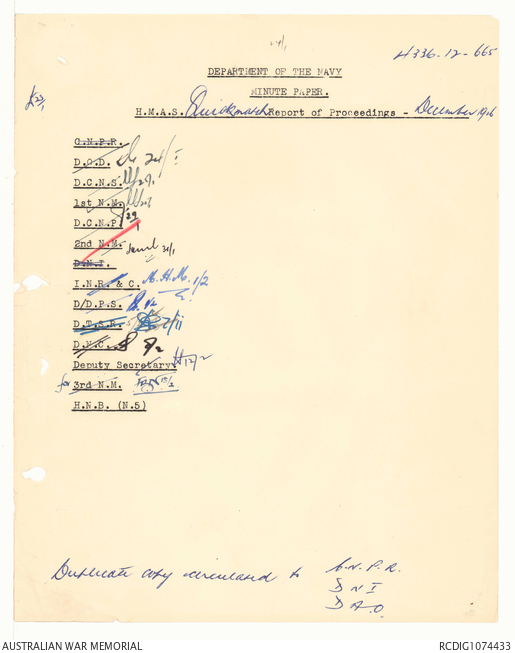 24/1
H336-12-665
DEPARTMENT OF THE NAVY
MINUTE PAPER.
H.M.A.S. Quickmatch Report of Proceedings - December 1946
23/1
C.N.P.R.
D.O.D. 24/1
D.C.N.S. 29/1
1st N.M.
D.C.N.P. 29/1
2nd N.M. 31/1
D.N.I.
I.N.R. & C. M.H.M. 1/2
D/D.P.S.
D.T.S.R. 7/11
D.N.C. 8/2
Deputy Secretary. 12/2
for 3rd N.M. 13/2
H.N.B. (N.5)
Duplicate copy circulated to C.N.P.R.
D N I
D A.O.
AUSTRALIAN WAR MEMORIAL
RCDIG1074433